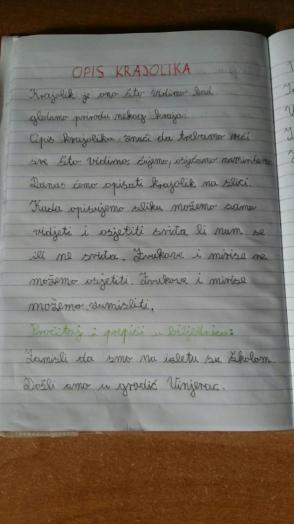 OPIS KRAJOLIKA
Krajolik je ono što vidimo kad
gledamo prirodu nekog kraja.
Opis krajolika znači da trebamo reći
sve što vidimo, čujemo, osjećamo
Danas ćemo opisati krajolik na slici.
Kada opisujemo sliku možemo samo
vidjeti i osjetiti sviđa li nam se
ili ne sviđa. Zvukove i mirise ne
možemo osjetiti. Zvukove i mirise
možemo zamisliti.
Pročitaj i prepiši u bilježnicu:
Zamisli da smo na izletu sa školom.
Došli smo u gradić Vinjerac.